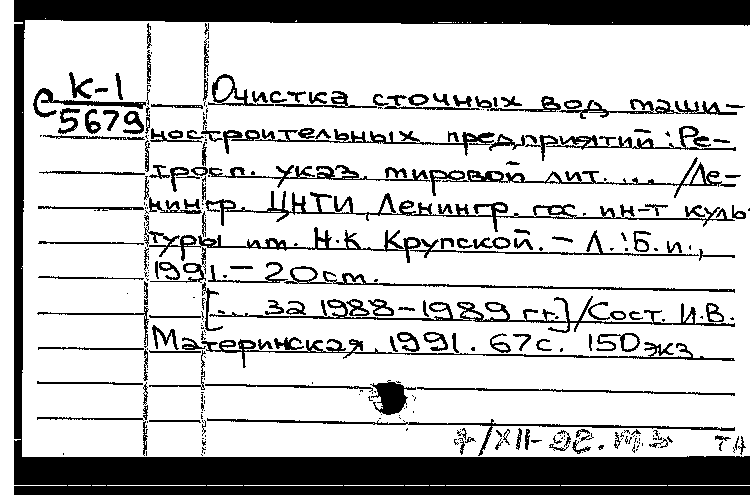 С К-1
5679
Очистка сточных вод маши-
ностроительных предприятий: Ре-
тросп. указ. мировой лит. ... /Ле-
нингр. ЦНТИ, Ленингр. гос. ин-т куль-
туры им. Н.К. Крупской. - Л.: Б.и.,
1991. - 20 см.
[... за 1988-1989 гг.] / Сост. И.В.
Материнская. 1991. 67с. 150экз.